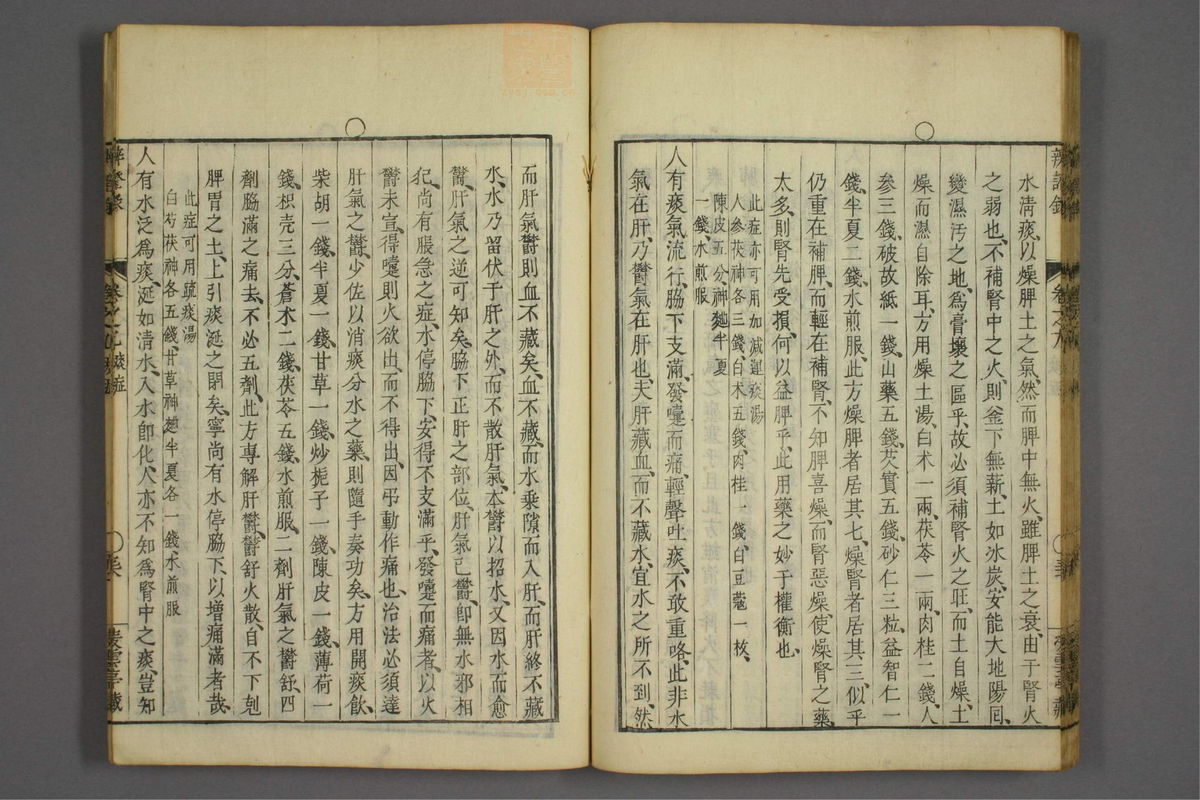 水清痰、以燥脾土之氣、然而脾中無火、雖脾土之衰、由于腎火
之弱也、不補腎中之火、則釜下無薪、土如冰炭、安能大地陽囘、
變濕汚之地、爲膏壤之區乎、故必須補腎火之旺、而土自燥、土
燥而濕自除耳、方用燥土湯、白朮一兩、茯苓一兩、肉桂二錢、人
參三錢、破故紙一錢、山藥五錢、芡實五錢、砂仁三粒、益智仁一
錢、半夏二錢、水煎服、此方燥脾者居其七、燥腎者居其三、似乎
仍重在補脾、而輕在補腎、不知脾喜燥、而腎惡燥、使燥腎之藥
太多、則腎先受損、何以益脾乎、此用藥之妙于權衡也、
此症亦可用加減運痰湯
人參茯神各三錢、白朮五錢、肉桂一錢、白豆蔻一枚、
陳皮五分、神麯半夏
一錢、水煎服
人有痰氣流行、脇下支滿、發嚏而痛、輕聲吐痰、不敢重咯、此非水
氣在肝、乃鬱氣在肝也、夫肝藏血、而不藏水、宜水之所不到、然
辨證錄
卷之九
而肝氣鬱、則血不藏矣、血不藏、而水乘隙而入肝、而肝終不藏
水、水乃留伏于肝之外、而不散、肝氣本鬱以招水、又因水而愈
鬱、肝氣之逆可知矣、脇下正肝之部位、肝氣已鬱、卽無水邪相
犯、尚有脹急之症、水停脇下、安得不支滿乎、發嚏而痛者、以火
鬱未宣、得嚏則火欲出、而不得出、因弔動作痛也、治法必須達
肝氣之鬱、少佐以消痰分水之藥、則隨手奏功矣、方用開痰飲、
柴胡一錢、半夏一錢、甘草一錢、炒梔子一錢、陳皮一錢、薄荷一
錢、枳壳三分、蒼朮二錢、茯苓五錢、水煎服、二劑肝氣之鬱舒、四
劑脇滿之痛去、不必五劑、此方專解肝鬱、鬱舒火散、自不下剋
脾胃之土、上引痰涎之閉矣、寧尚有水停脇下、以增痛滿者哉、
此症可用疏痰湯
白芍茯神各五錢、甘草神麯半夏各一錢、水煎服
人有水泛爲痰、涎如清水、入水卽化、人亦不知爲腎中之痰、豈知
辨證錄
痰症